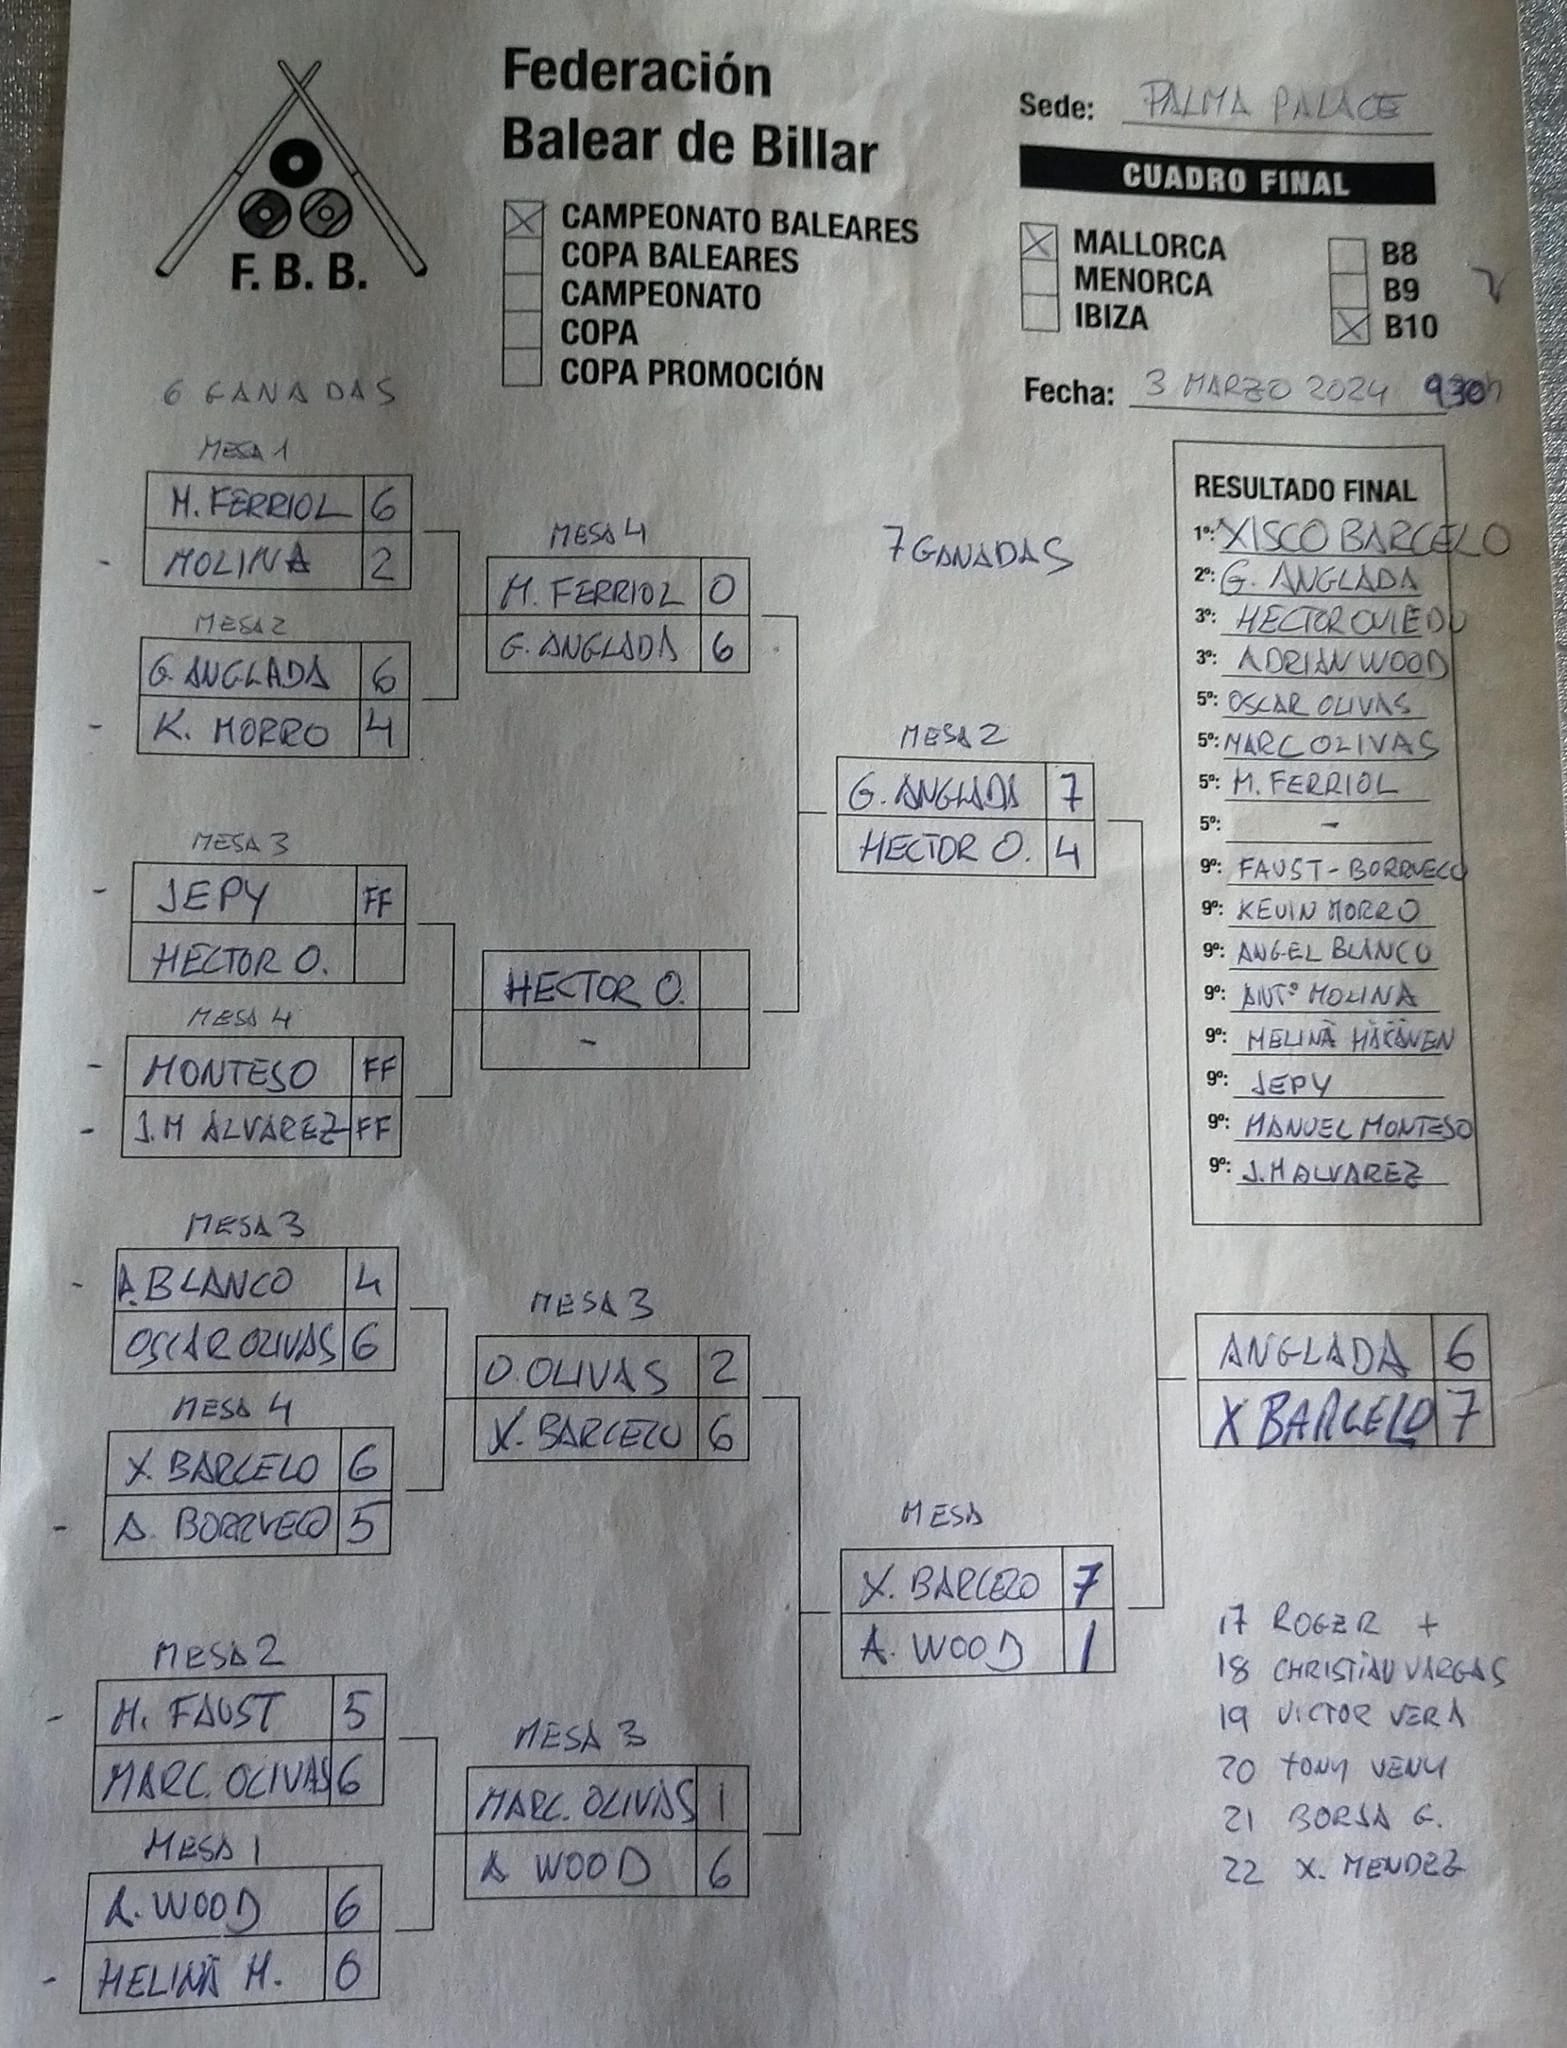 Federación
Balear de Billar
F. B. B.
CAMPEONATO BALEARES
COPA BALEARES
CAMPEONATO
COPA
COPA PROMOCIÓN
Sede: PALMA PALACE
CUADRO FINAL
MALLORCA
MENORCA
IBIZA
B8
B9
B10
Fecha: 3 MARZO 2024 930h
6 GANADAS
MESA 1
M. FERRIOL 6
MOLINA 2
MESA 2
G. ANGLADA 6
K. MORRO 4
MESA 3
JEPY FF
HECTOR O.
MESA 4
MONTESO FF
J.M ALVAREZ FF
MESA 3
A. BLANCO 4
OSCAR OLIVAS 6
MESA 4
X. BARCELO 6
A. BORRUECO 5
MESA 2
M. FAUST 5
MARC. OLIVAS 6
MESA 1
A. WOOD 6
MELINÄ M. 0
MESA 4
M. FERRIOL 0
G. ANGLADA 6
HECTOR O.
-
MESA 3
O. OLIVAS 2
X. BARCELO 6
MESA 3
MARC. OLIVAS 1
A WOOD 6
7 GANADAS
MESA 2
G. ANGLADA 7
HECTOR O. 4
MESA
X. BARCELO 7
A. WOOD 1
ANGLADA 6
X BARCELO 7
RESULTADO FINAL
1º: XISCO BARCELO
2º: G. ANGLADA
3º: HECTOR OVIEDO
3º: ADRIAN WOOD
5º: OSCAR OLIVAS
5º: MARC OLIVAS
5º: M. FERRIOL
5º: -
9º: FAUST - BORRUECO
9º: KEVIN MORRO
9º: ANGEL BLANCO
9º: ANTº MOLINA
9º: MELINÄ
9º: JEPY
9º: MANUEL MONTESO
9º: J.M ALVAREZ
17 ROGER +
18 CHRISTIAN VARGAS
19 VICTOR VERA
20 TONY VENY
21 BORJA G.
22 X. MENDEZ